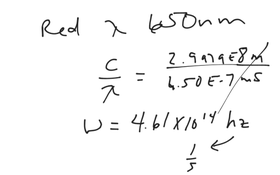 Red λ 650nm
C/λ = 2.9979E8m/6.50E-7ms
ν = 4.61×10¹⁴ hz
1/s